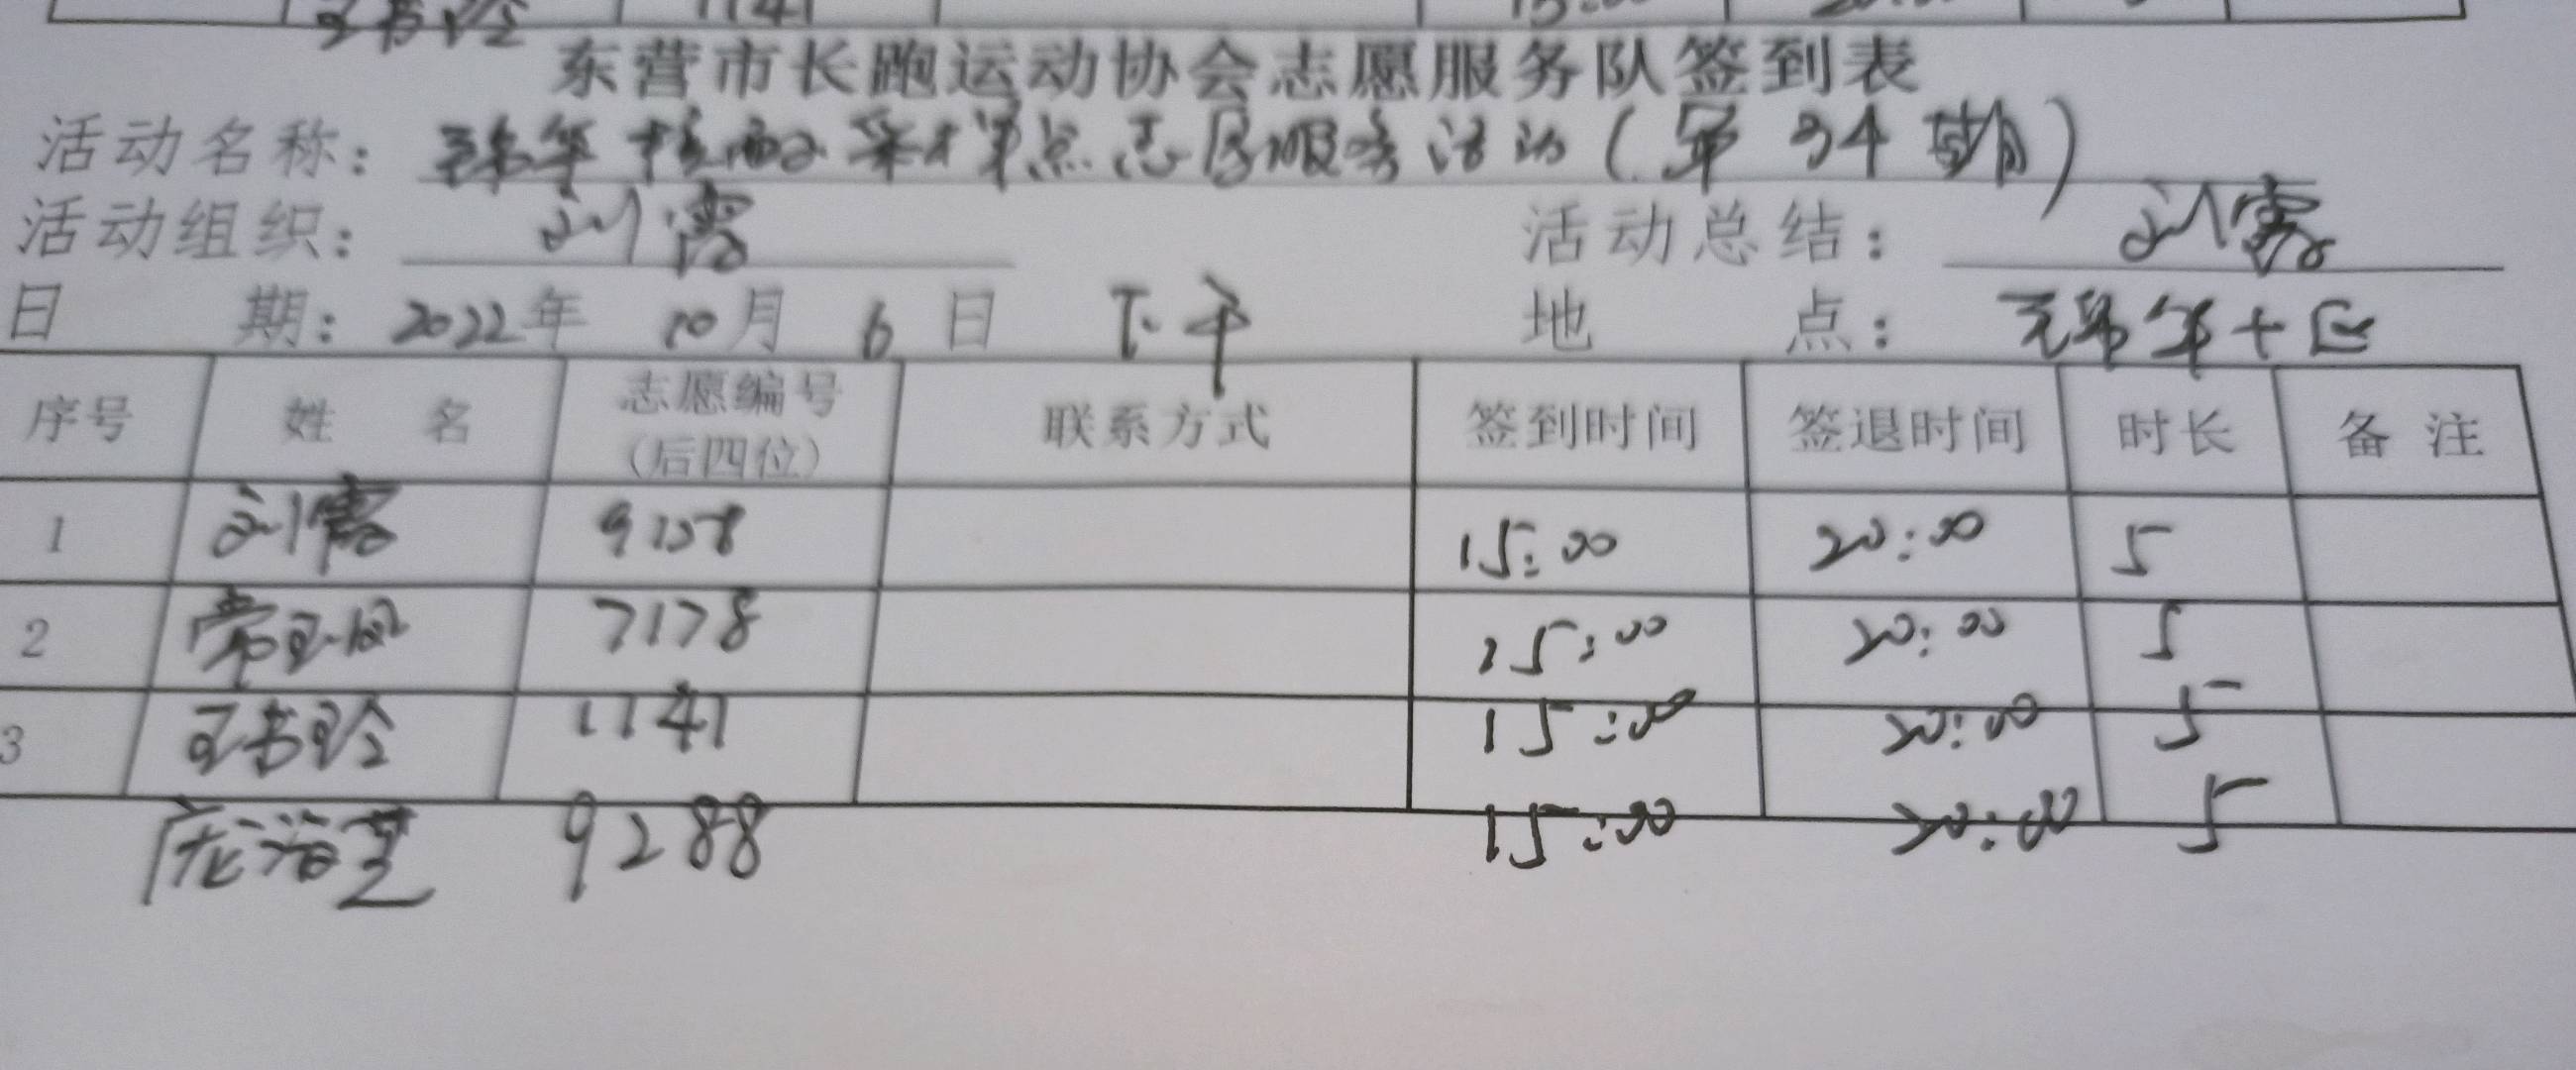 1141 15:00
东营市长跑运动协会志愿服务队签到表
活动名称: 核酸采样点志愿服务活动(第34期)
活动组织: 刘霞 活动总结: 刘霞
日 期: 2022年 10月 6日 下午 地 点: 十区
序号 姓 名 志愿编号(后四位) 联系方式 签到时间 签退时间 时长 备 注
1 刘霞 9158 15:00 20:00 5
2 7178 15:00 20:00 5
3 1141 15:00 20:00 5
庞海芝 9288 15:00 20:00 5